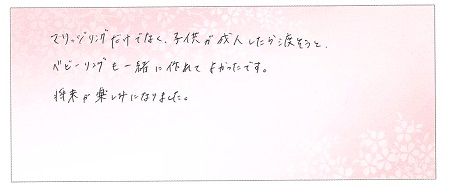 マリッジリングだけでなく、子供が成人したら渡そうと、
ベビーリングも一緒に作れてよかったです。
将来が楽しみになりました。